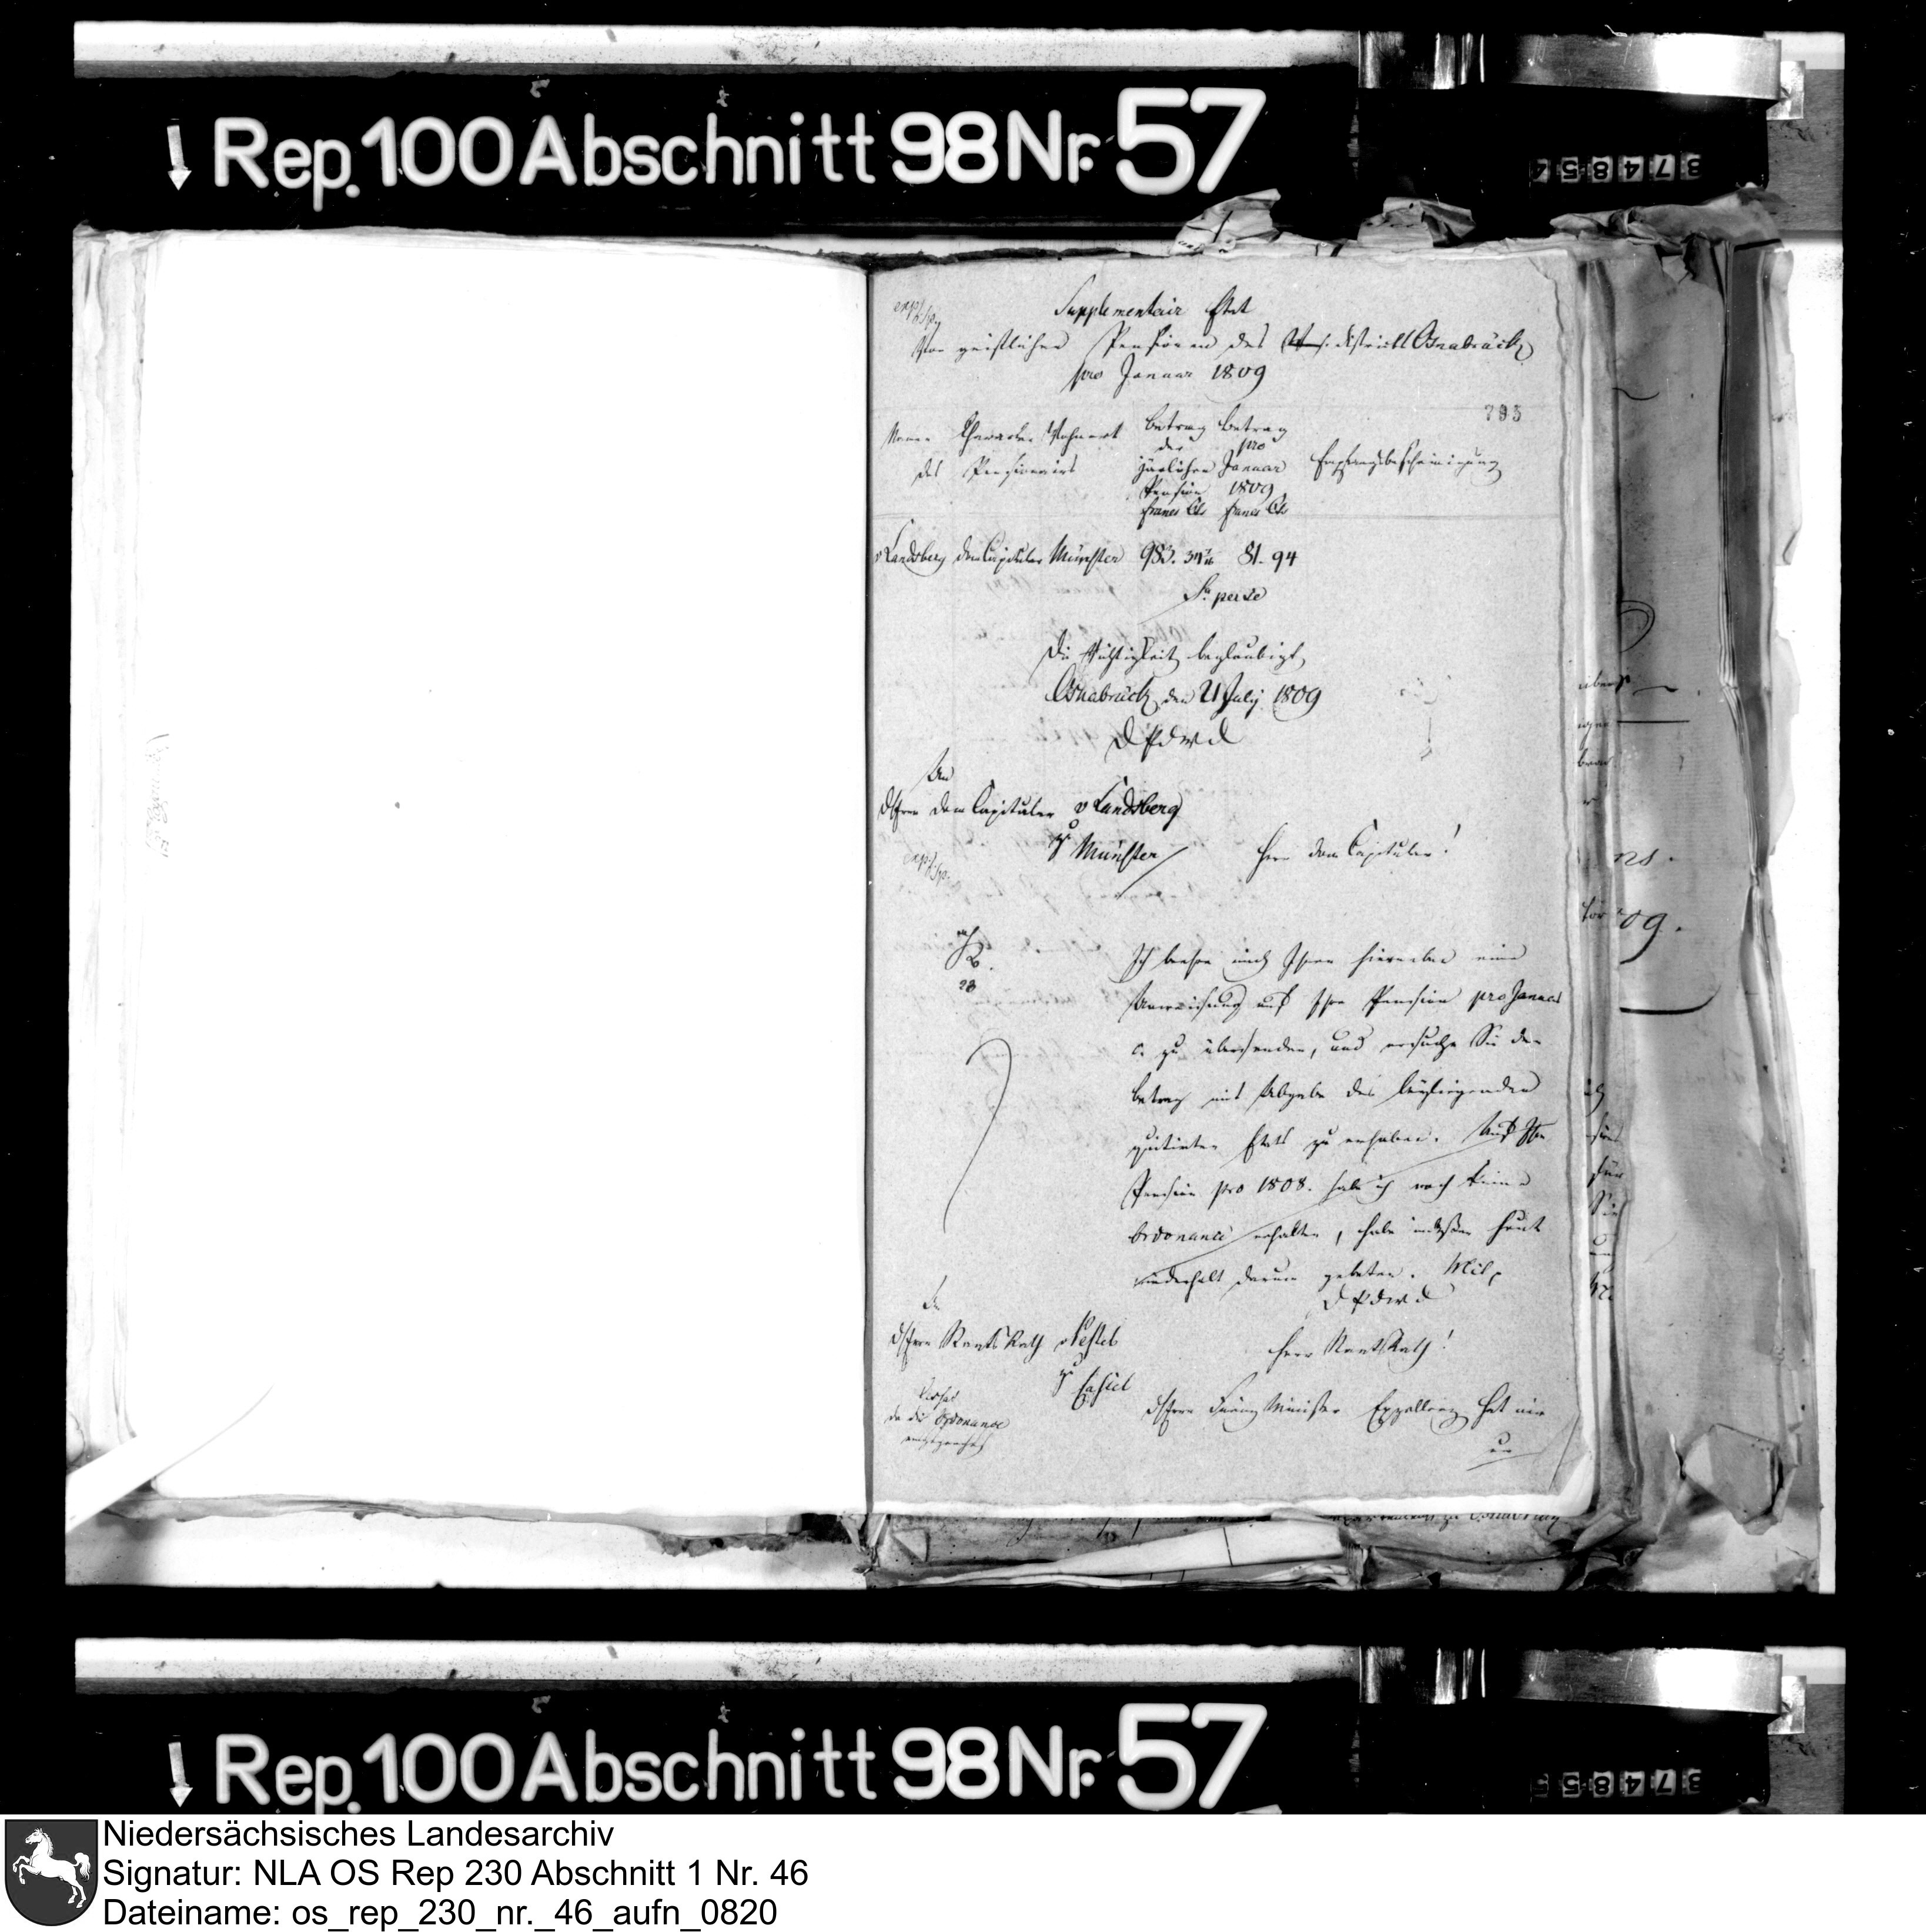 Rep. 100 Abschnitt 98 Nr. 57
Supplementair Etat
Der geistlichen Pensionen des Districts Osnabrück
pro Januar 1809
795
Name Character Wohnort
des Pensionairs
Betrag der jährlichen Pension
francs Cts
Betrag pro Januar 1809
francs Cts
Empfangsbescheinigung
v Landsberg domCapitular Münster 983. 81. 94
Sa per se
Die Richtigkeit beglaubigt
Osnabrück den 21 July 1809
D P d W D
An
d Herrn Dom Capitular v Landsberg
zu Münster
Herr Dom Capitular!
Ich beehre mich Ihnen hierneben eine
Anweisung auf Ihre Pension pro Januar
c. zu übersenden, und ersuche Sie den
Betrag mit Abgabe des beyliegenden
quitirten Etats zu erheben. Auf Ihre
Pension pro 1808. habe ich noch keine
Ordonance erhalten, habe indeßen heute
wiederholt darum gebeten. Mit
D P d W D
An
d Herrn StaatsRath v Pestel
zu Cassel
Herr StaatsRath!
da die Ordonance
d Herrn Finanz Minister Exzellenz hat mir
Rep. 100 Abschnitt 98 Nr. 57
Niedersächsisches Landesarchiv
Signatur: NLA OS Rep 230 Abschnitt 1 Nr. 46
Dateiname: os_rep_230_nr._46_aufn_0820